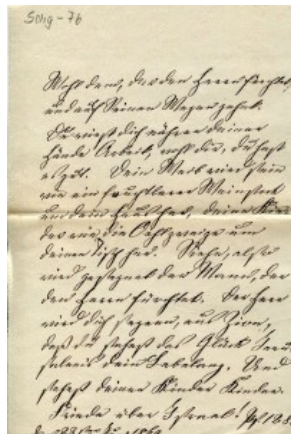 Song-76
Wohl dem, der den Herrn fürchtet,
und auf Seinen Wegen gehet.
Du wirst dich nähren deiner
Hände Arbeit, wohl dir, du hast
es gut. Dein Weib wird sein
wie ein fruchtbarer Weinstock
um dein Haus her, deine Kin
der wie die Oelzweige um
deinen Tisch her. Siehe, also
wird gesegnet der Mann, der
den Herrn fürchtet. Der Herr
wird dich segnen, aus Zion,
daß du sehest das Glück Jeru
salems dein Lebelang. Und
sehest deiner Kinder Kinder.
Friede über Israel. Ps 128.